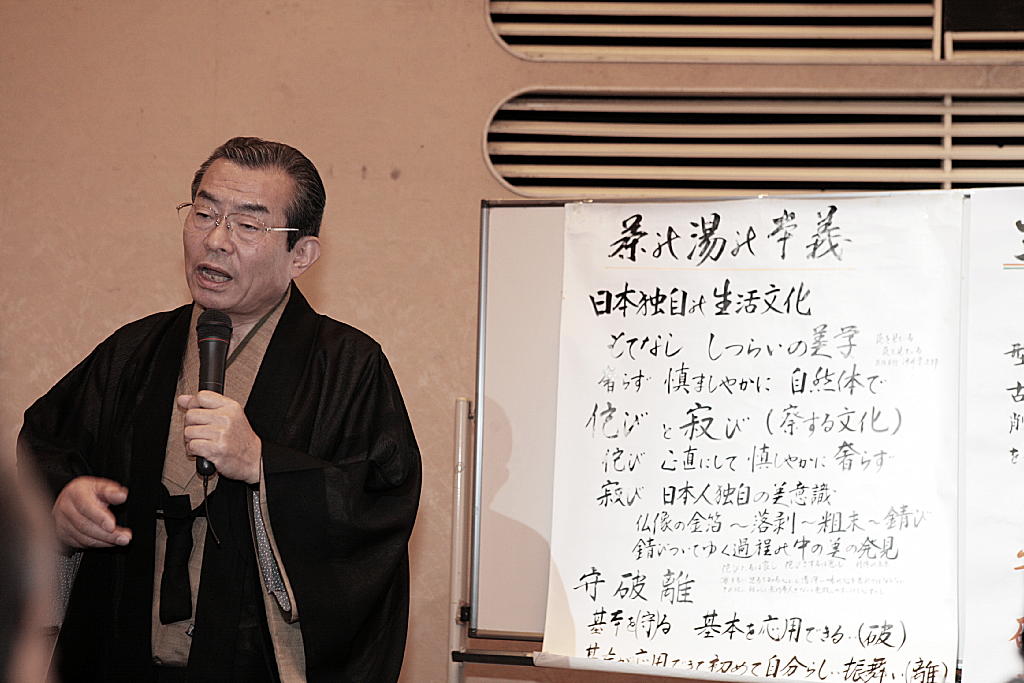 茶の湯の本義
日本独自の生活文化
もてなし しつらいの美学
奢らず 慎ましやかに 自然体で
侘び と 寂び (察する文化)
侘び 心直にして 慎しやかに 奢らず
寂び 日本人独自の美意識
仏像の金箔〜落剥〜粗末〜錆び
錆びついてゆく過程の中の美の発見
守 破 離
基本を(守)る 基本を応用できる..(破)
基本が応用できて初めて自分らしい振舞い(離)
型
古
削
を